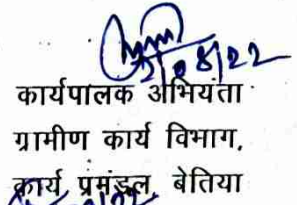 2/08/22
कार्यपालक अभियंता
ग्रामीण कार्य विभाग,
कार्य, प्रमंडल, बेतिया